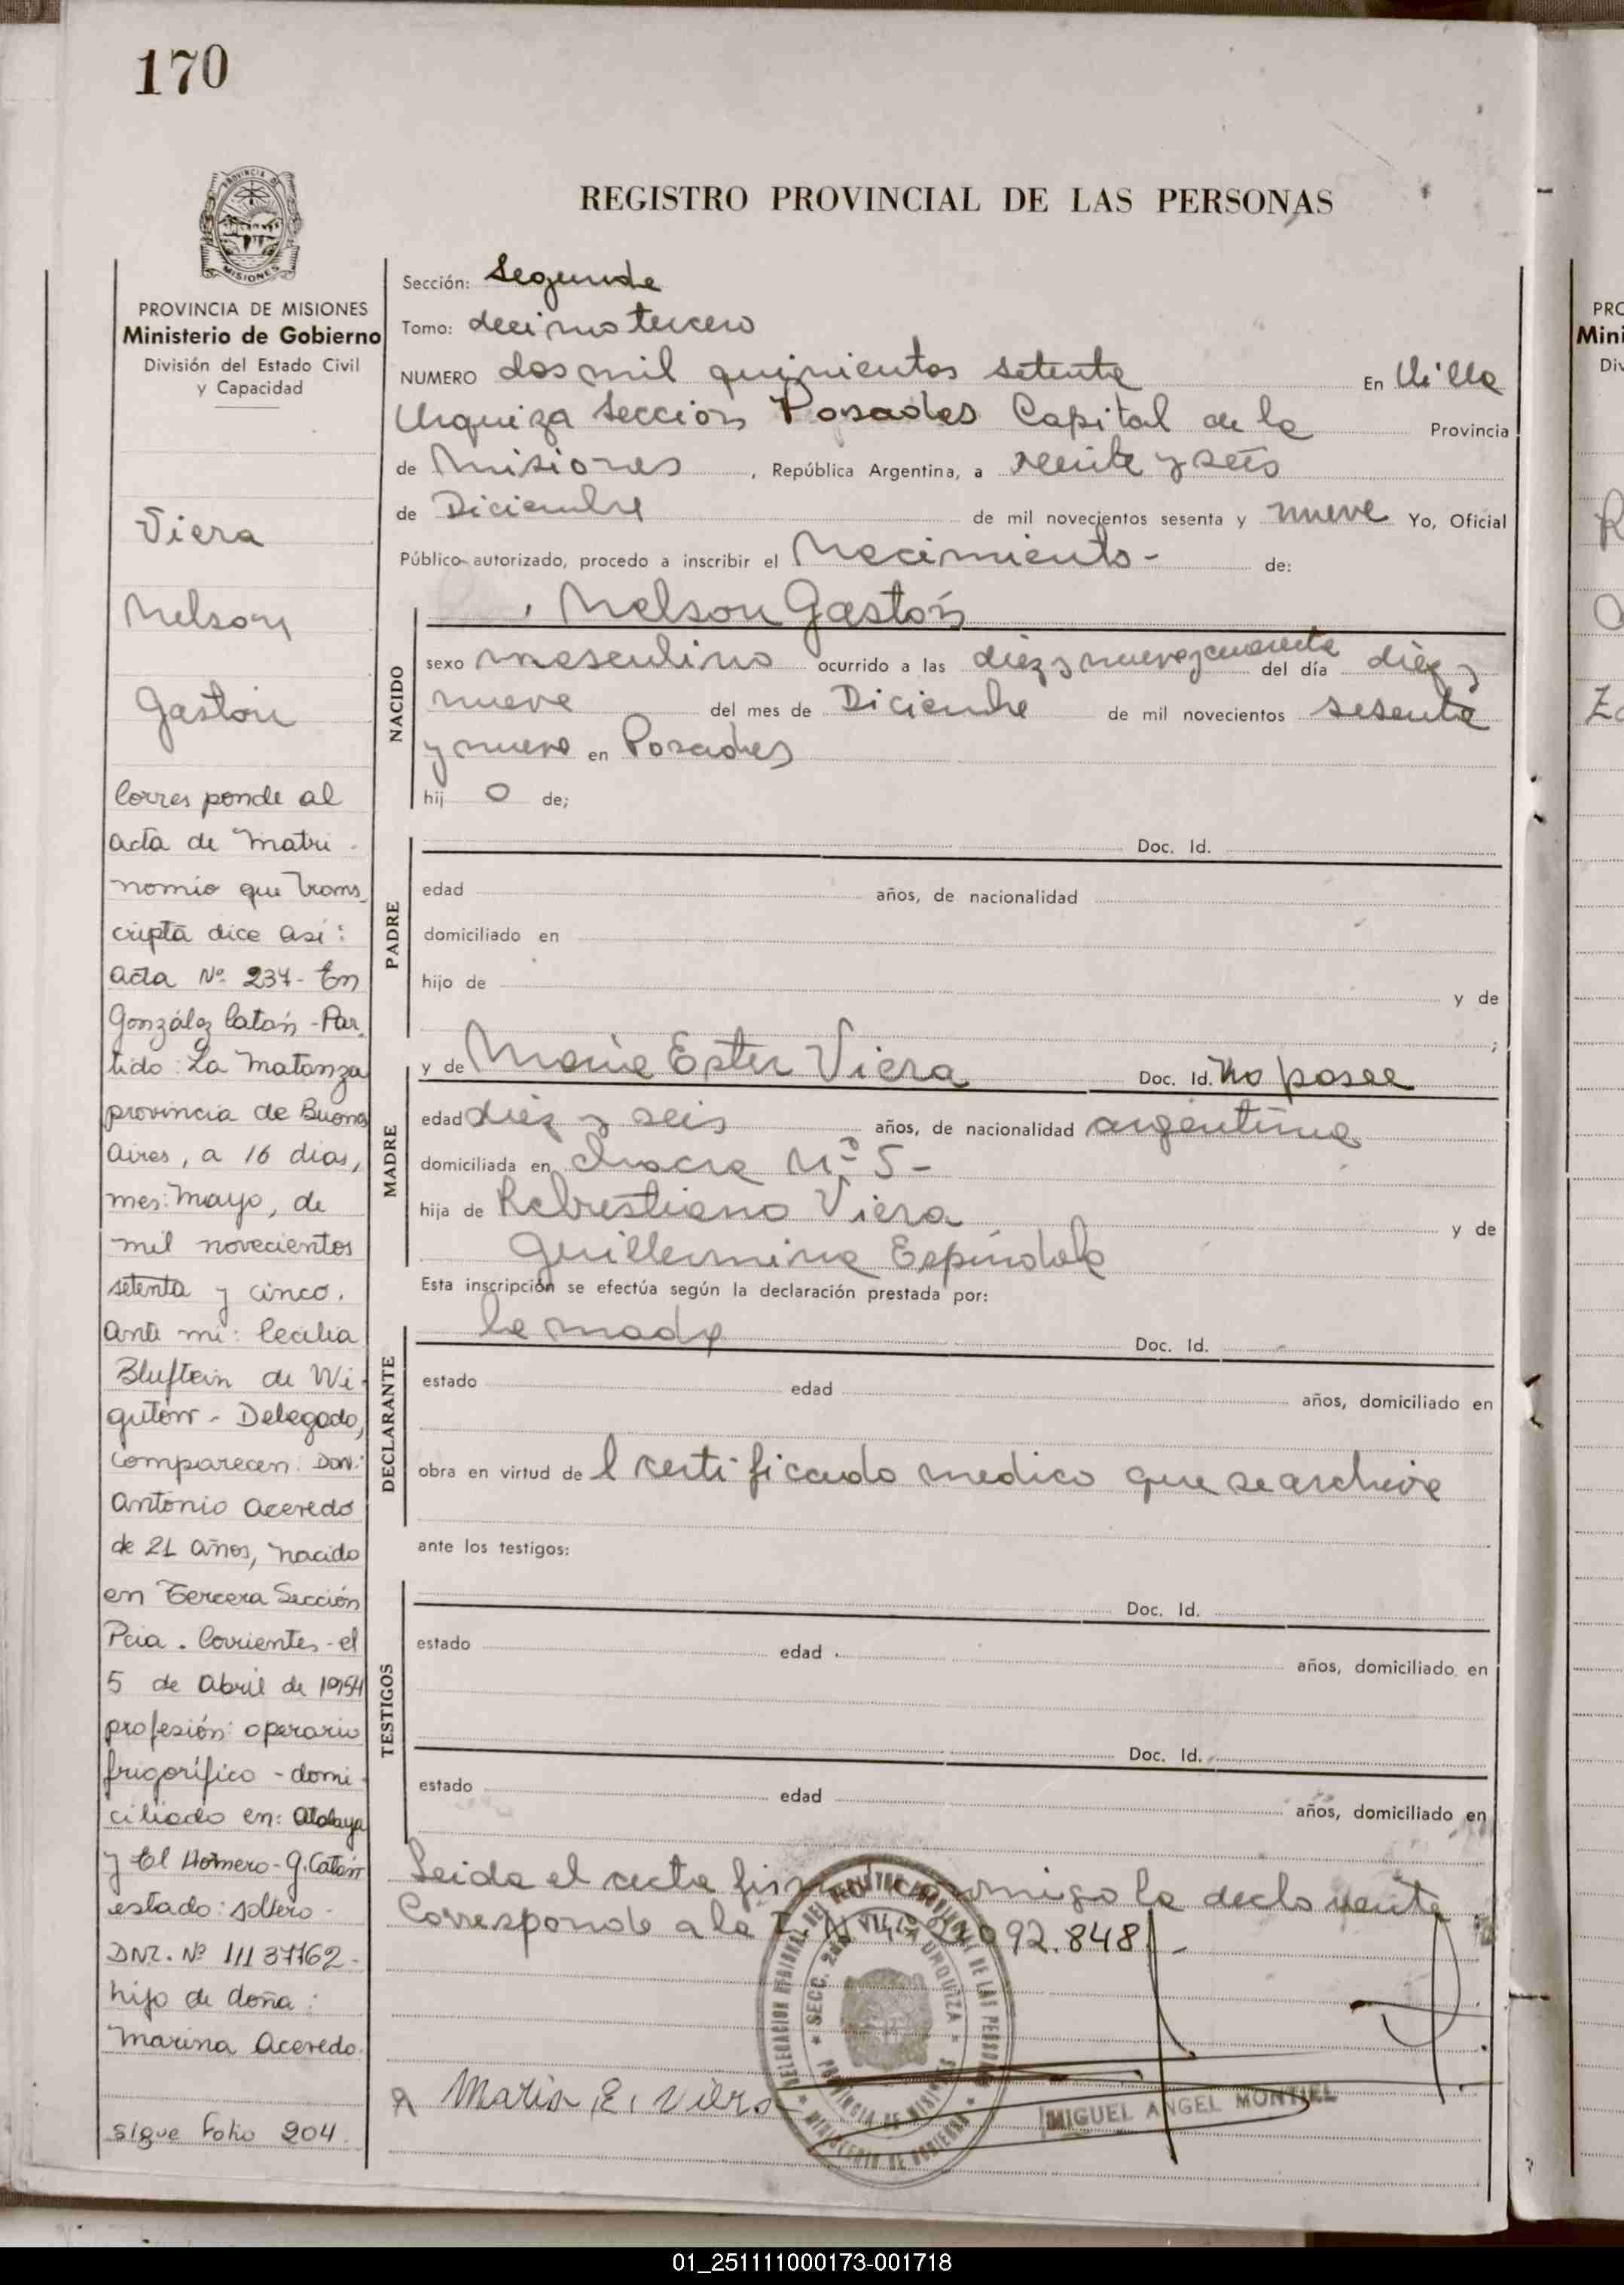 170
PROVINCIA DE MISIONES
MISIONES
PROVINCIA DE MISIONES
Ministerio de Gobierno
División del Estado Civil
y Capacidad
Viera
Nelson
Gastón
Corresponde al
acta de Matri-
nomio que trans-
cripta dice así:
Acta Nº 237- En
González Catán - Par-
tido: La Matanza
provincia de Buenos
Aires, a 16 dias,
mes: Mayo, de
mil novecientos
setenta y cinco.
Ante mi: Cecilia
Bluftein de
- Delegado,
Comparecen: Don:
Antonio Acevedo
de 21 años, nacido
en Tercera Sección
Pcia. Corrientes - el
5 de Abril de 1954
profesión: operario
frigorífico - domi-
ciliado en: Atalaya
y El Hornero - G. Catán
estado: soltero -
DNI. Nº 11137162 -
hijo de doña:
Marina Acevedo.
sigue Folio 204
REGISTRO PROVINCIAL DE LAS PERSONAS
Sección: Segunda
Tomo: decimo tercero
NUMERO dos mil quinientos setenta En Villa
Urquiza Sección Posadas Capital de la Provincia
de Misiones , República Argentina, a veinte y seis
de Diciembre de mil novecientos sesenta y nueve Yo, Oficial
Público autorizado, procedo a inscribir el Nacimiento - de:
NACIDO
Nelson Gastón
sexo masculino ocurrido a las diez y nueve y cuarenta del día diez y
nueve del mes de Diciembre de mil novecientos sesenta
y nueve en Posadas
hij o de;
PADRE
Doc. Id.
edad años, de nacionalidad
domiciliado en
hijo de y de
;
MADRE
y de María Ester Viera Doc. Id. No posee
edad diez y seis años, de nacionalidad argentina
domiciliada en chacra Nº 5 -
hija de Viera y de
Guillermina Espindola
Esta inscripción se efectúa según la declaración prestada por:
DECLARANTE
la madre Doc. Id.
estado edad años, domiciliado en
obra en virtud de l certificado medico que se archiva
ante los testigos:
TESTIGOS
Doc. Id.
estado edad años, domiciliado en
Doc. Id.
estado edad años, domiciliado en
Leida el acta conmigo la declarante
Corresponde a la 092.848 -
SECC. 2da VILLA URQUIZA
PROVINCIA DE MISIONES
MINISTERIO DE GOBIERNO
Maria E. Viera
MIGUEL ANGEL MONTIEL
PRO
Mini
Div
01_251111000173-001718